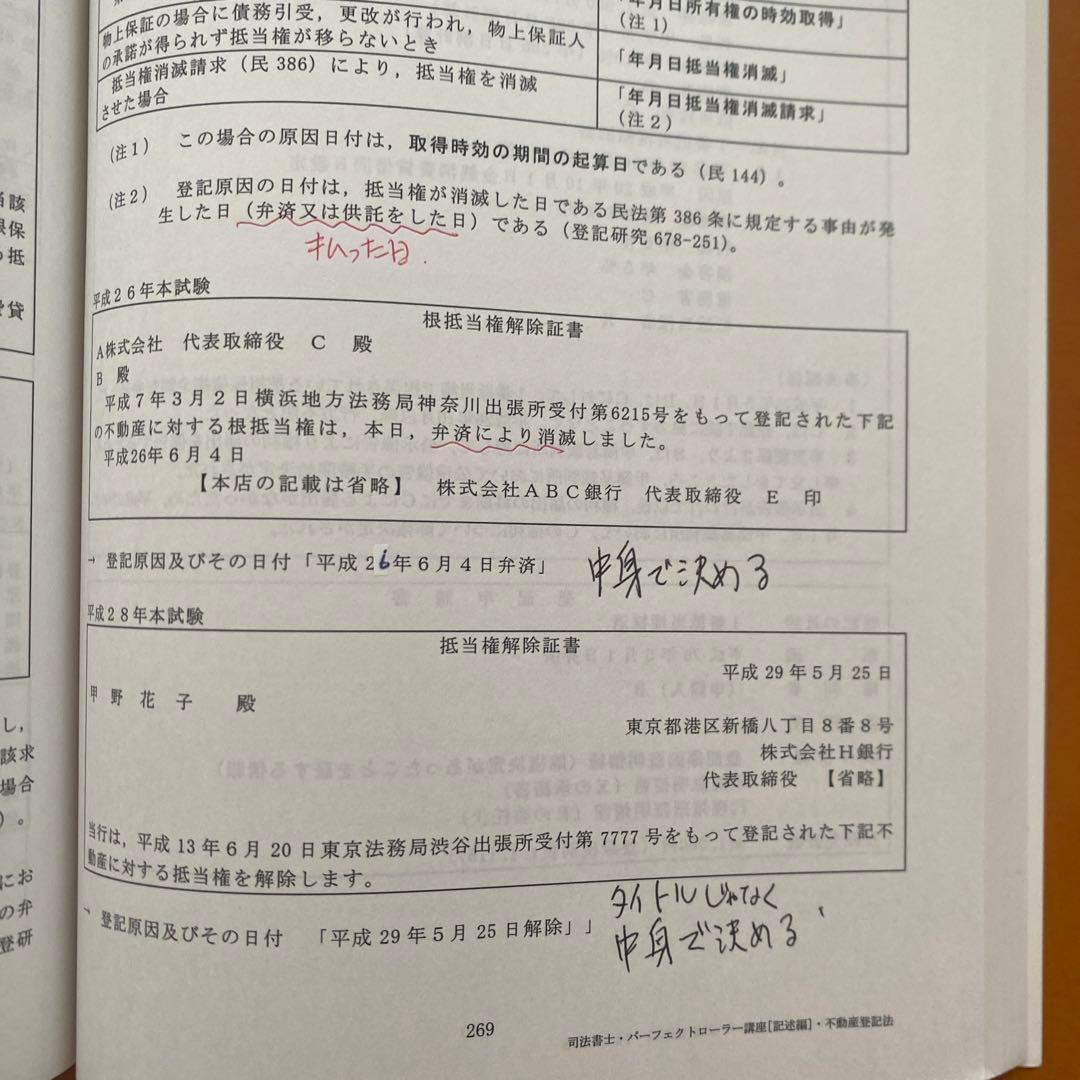 年月日所有権の時効取得」
（注１）
物上保証の場合に債務引受，更改が行われ，物上保証人
の承諾が得られず抵当権が移らないとき
「年月日抵当権消滅」
抵当権消滅請求（民386）により，抵当権を消滅
させた場合
「年月日抵当権消滅請求」
（注２）
（注１）　この場合の原因日付は，取得時効の期間の起算日である（民144）。
（注２）　登記原因の日付は，抵当権が消滅した日である民法第386条に規定する事由が発
生した日（弁済又は供託をした日）である（登記研究678-251）。
平成２６年本試験
根抵当権解除証書
Ａ株式会社　代表取締役　Ｃ　殿
Ｂ 殿
平成７年３月２日横浜地方法務局神奈川出張所受付第6215号をもって登記された下記
の不動産に対する根抵当権は，本日，弁済により消滅しました。
平成26年６月４日
【本店の記載は省略】　株式会社ＡＢＣ銀行　代表取締役　Ｅ　印
→ 登記原因及びその日付「平成26年６月４日弁済」
中身で決める
平成２８年本試験
抵当権解除証書
平成29年５月25日
甲 野 花 子　殿
東京都港区新橋八丁目８番８号
株式会社Ｈ銀行
代表取締役　【省略】
当行は，平成13年６月20日東京法務局渋谷出張所受付第7777号をもって登記された下記不
動産に対する抵当権を解除します。
タイトルじゃなく
→ 登記原因及びその日付　「平成29年５月25日解除」」
中身で決める
269
司法書士・パーフェクトローラー講座[記述編]・不動産登記法
当該
根保
の抵
賃
し，
該求
場合
）。
にお
の弁
登研